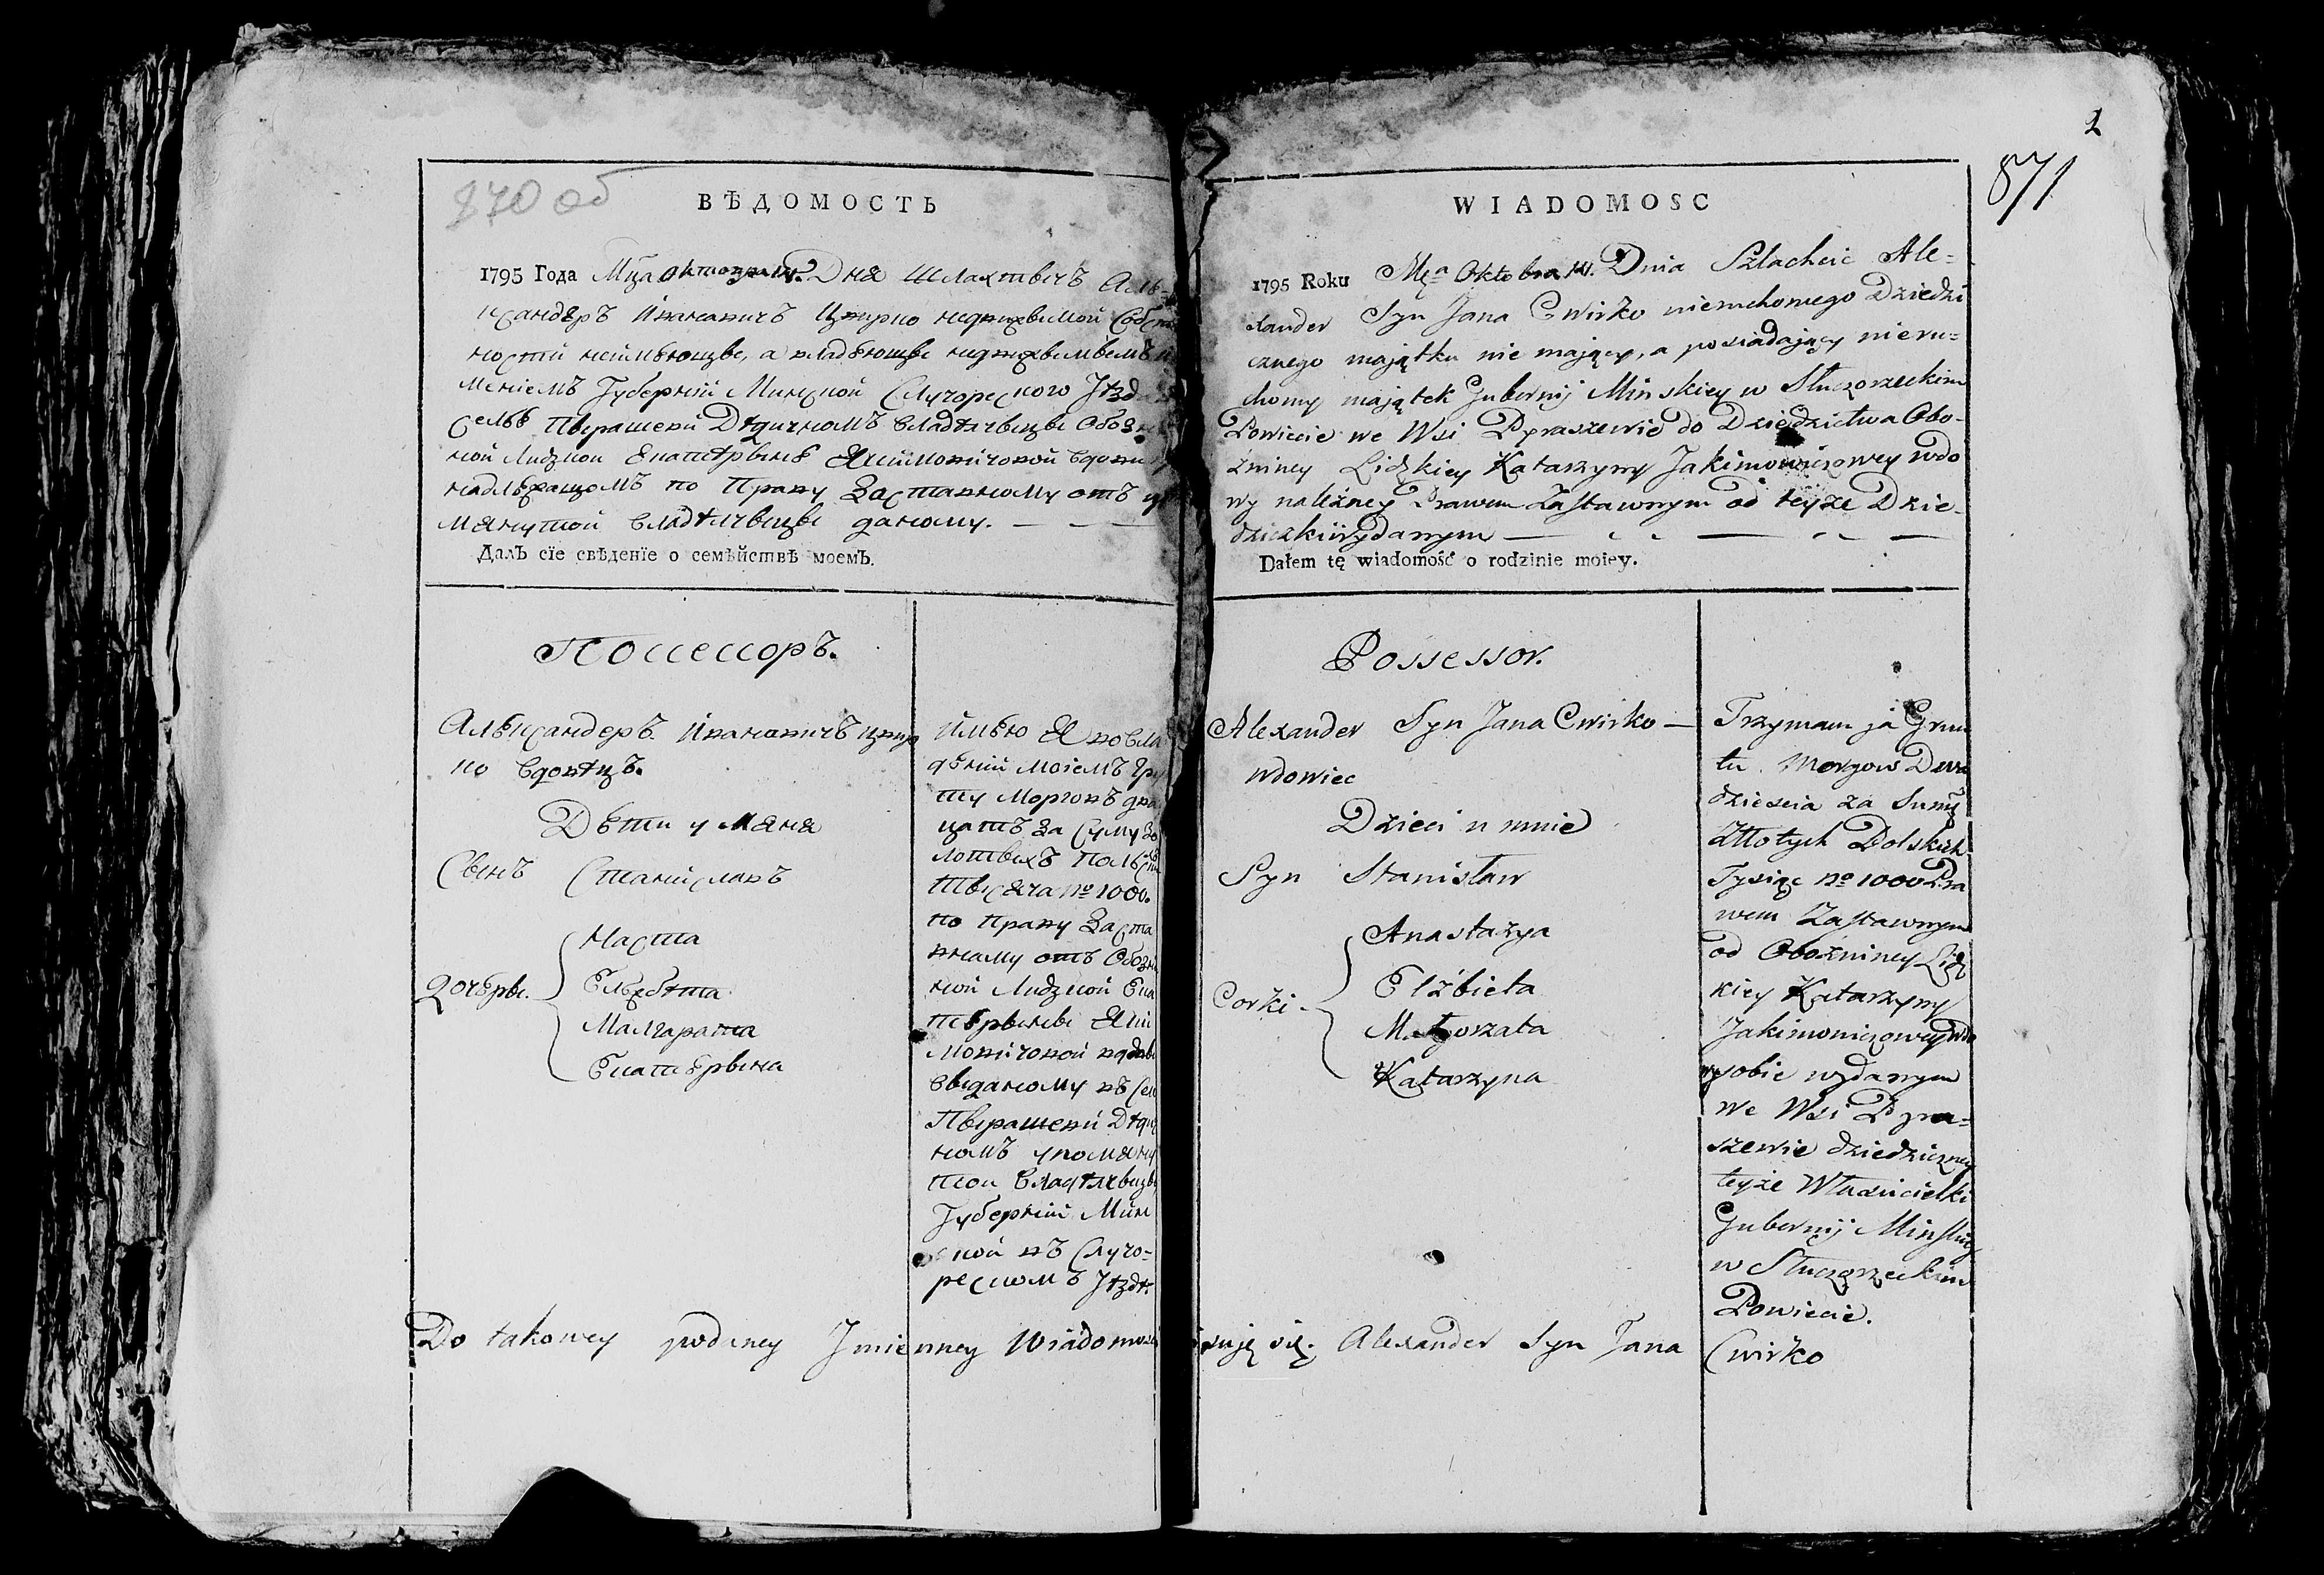 870 об
ВѢДОМОСТЬ
1795 Года Мца Октовра Дня Шляхтичъ Аль-
ксандеръ Ивановичъ Цвирко недвижимой Собст
ности неимѣющы, а владѣющы недвижимымъ и
мѣніемъ Губерніи Минской Случорецкого Уѣзда
Селѣ Пырашеви Дѣдичномъ Владѣлчыцы Обозн
ной Лидзкой Екатѣрыны Якимовичовой вдовы
надлѣжащомъ по Праву Заставному отъ
мянутой Владѣлчыцы даному.
Далъ сїе свѣденїе о семѣйствѣ моемъ.
Поссессоръ.
Альксандеръ Ивановичъ Цвир
ко вдовѣцъ.
Дѣти у мѣня
Сынъ Станиславъ
Дочѣры. Наста
Ельжбѣта
Малгарата
Екатѣрына
Имѣю я во вла
дѣніи моіемъ Гру
нту Морговъ два
цать за Суму Зо
лотыхъ Польски
Тысяча № 1000.
по Праву Заста
вному отъ Обозн
ной Лидзкой Ека
тѣрыны Яки
мовичовой вдовы
выданому въ Сел
Пырашеви Дѣдич
номъ упомяну
той Владѣлчыцы
Губерніи Мин
ской въ Случо-
рецкомъ Уѣздѣ.
Do takowey podaney Jmienney Wiadomosci
2
871
WIADOMOSC
1795 Roku Mca Oktobra Dnia Szlachcic Ale-
xander Syn Jana Cwirko nieruchomego Dziedzi
cznego majątku nie mający, a posiadający nieru-
chomy majątek Gubernij Minskiey w Słuczorzeckim
Powiecie we Wsi Pyraszewie do Dziedzictwa Obo-
źniney Lidzkiey Katarzyny Jakimowiczowey wdo
wy należney Prawem Zastawnym od teyże Dzie-
dziczki wydanym
Dałem tę wiadomość o rodzinie moiey.
Possessor.
Alexander Syn Jana Cwirko
wdowiec
Dzieci u mnie
Syn Stanisław
Corki Anastazya
Elźbieta
Małgorzata
Katarzyna
Trzymam ja Grun
tu Morgow Dwa
dziescia za Summę
Złłotych Polskich
Tysiąc No 1000 Pra
wem Zastawnym
od Oboźniney Lidz
kiey Katarzyny
Jakimowiczowey wdo
wy sobie wydanym
we Wsi Pyra-
szewie dziedziczney
teyże Własicielki
Gubernij Minskiey
w Słuczorzeckim
Powiecie.
suję się. Alexander Syn Jana Cwirko